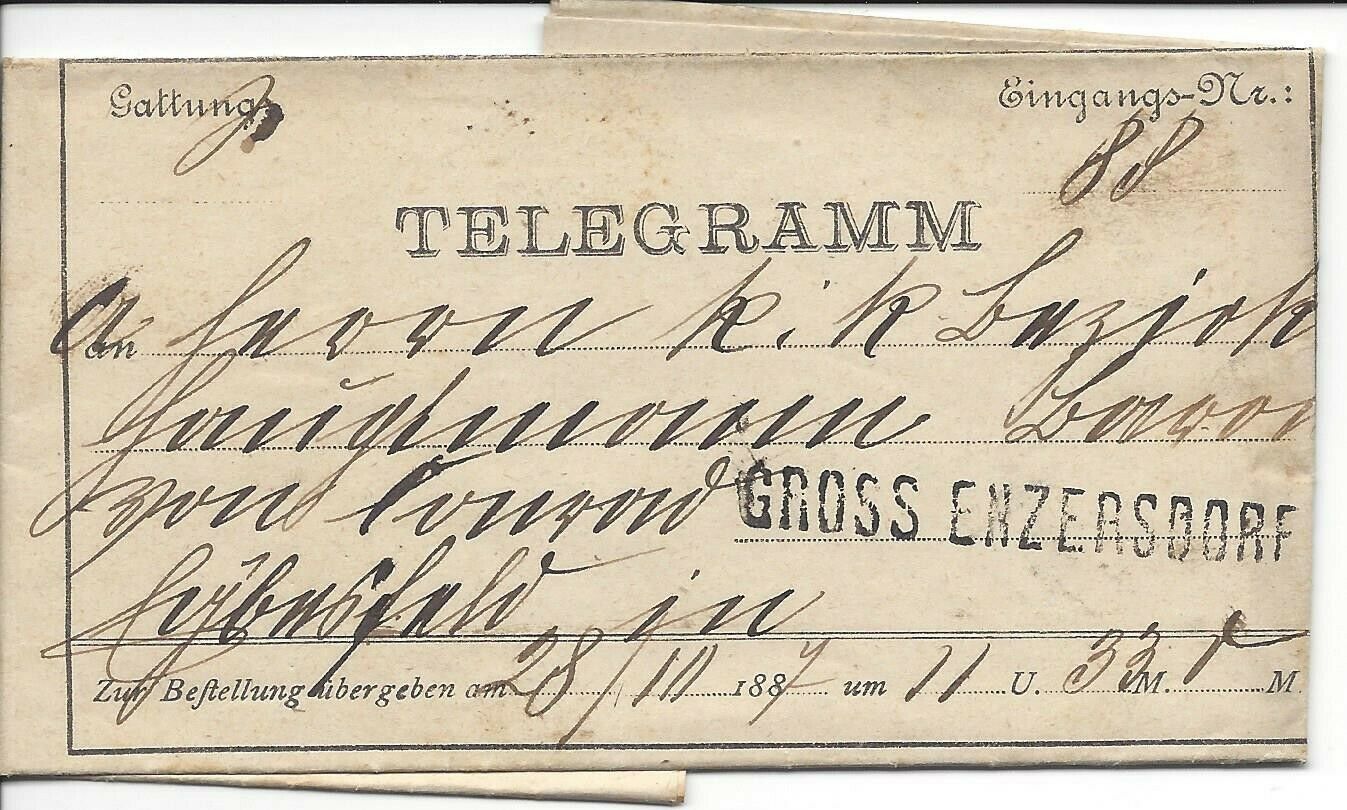 Gattung:
Eingangs-Nr.:
88
TELEGRAMM
an Herrn k. k Bezirk
Hauptmann Baron
von Conrad
GROSS ENZERSDORF
Eybesfeld in
Zur Bestellung übergeben am 28/10 1887 um 11 U. 33 M. M